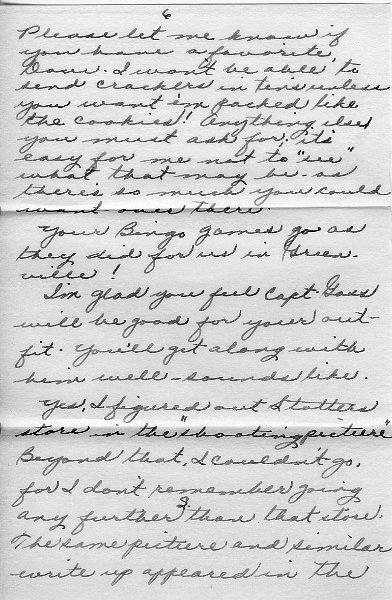 6
Please let me know if
you have a favorite,
Dave. I won't be able to
send crackers in tens unless
you want 'em packed like
the cookies! Anything else
you must ask for, it's
easy for me not to "see"
what that may be - as
there's so much you could
want over there.
Your Bingo games go as
they did for us in Green-
ville!
I'm glad you feel Capt. Goss
will be good for your out-
fit. You'll get along with
him well - sounds like.
Yes, I figured out Statlers
store in the "shooting picture"
Beyond that, I couldn't go,
for I don't remember going
any further than that store.
The same picture and similar
write up appeared in the